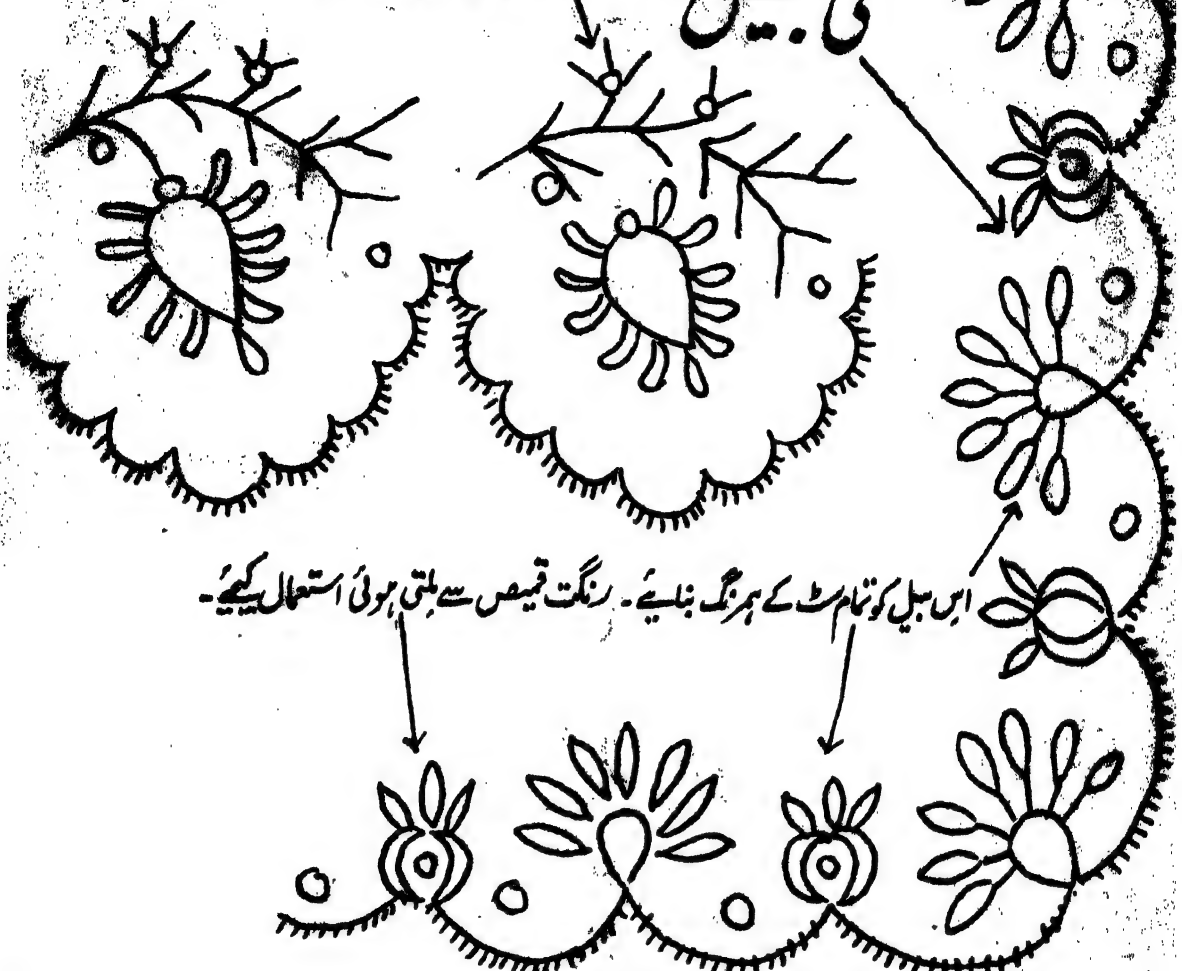 اس بیل کو تمام سٹ کے ہمرنگ بنایئے۔ رنگت قمیص سے ملتی ہوئی استعمال کیجیئے۔